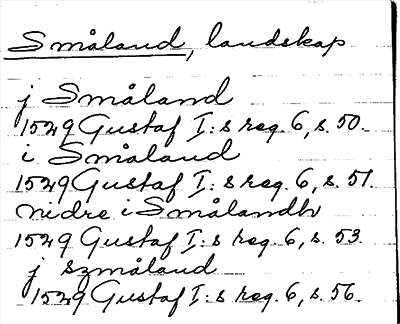 Småland, landskap
j Småland
1529 Gustaf I:s reg. 6, s. 50.
i Småland
1529 Gustaf I:s reg. 6, s. 51.
nidre i Smålandh
1529 Gustaf I:s reg. 6, s. 53.
j szmåland
1529 Gustaf I:s reg. 6, s. 56.